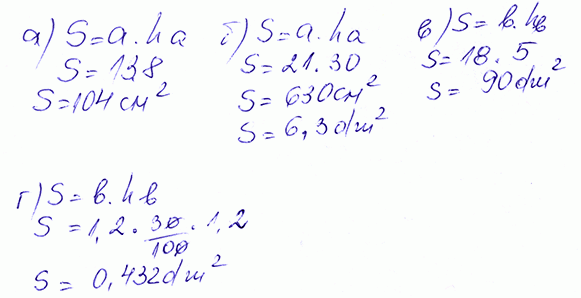 а) S = a . ha
S = 138
S = 104 см²
б) S = a . ha
S = 21 . 30
S = 630 см²
S = 6,3 dm²
в) S = b . hb
S = 18 . 5
S = 90 dm²
г) S = b . hb
S = 1,2 . 30/100 . 1,2
S = 0,432 dm²